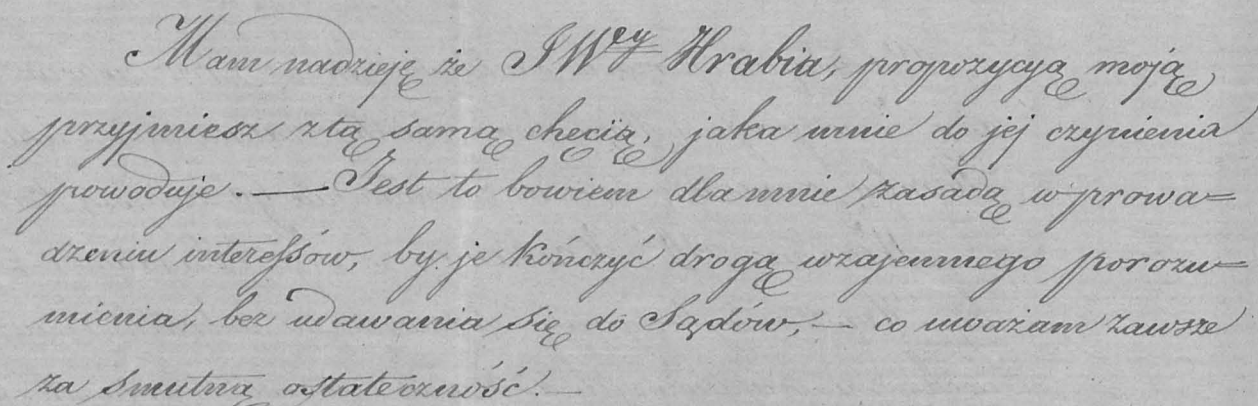 Mam nadzieję że JWny Hrabia, propozycyą moją
przyjmiesz z tą samą chęcią, jaka mnie do jej czynienia
powoduje. — Jest to bowiem dla mnie zasadą w prowa=
dzeniu interessów, by je kończyć drogą wzajemnego porozu=
mienia, bez udawania się do Sądów, — co uważam zawsze
za smutną ostateczność. —